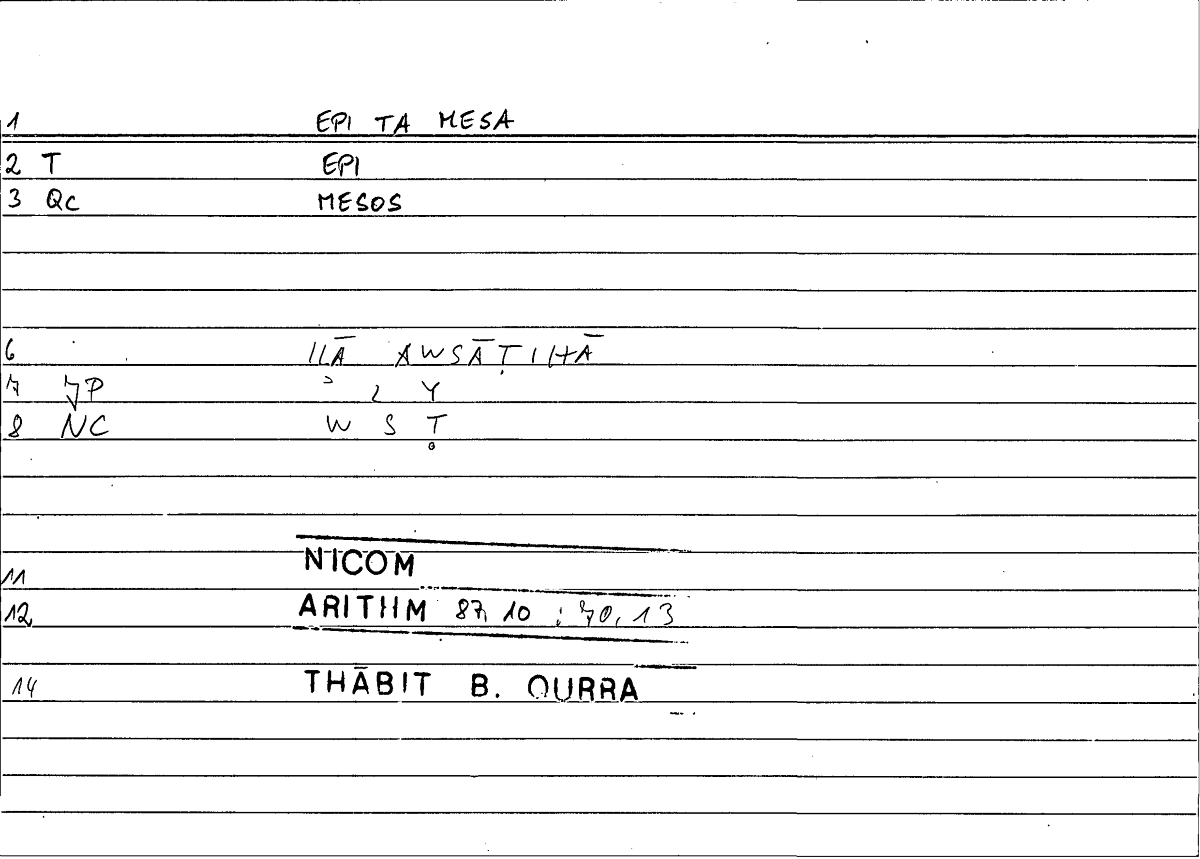 1 EPI TA MESA
2 T EPI
3 Qc MESOS
6 ILĀ AWSĀṬIHĀ
7 JP ʾ L Y
8 NC W S Ṭ
11 NICOM
12 ARITHM 87, 10 ; 70, 13
14 THĀBIT B. QURRA